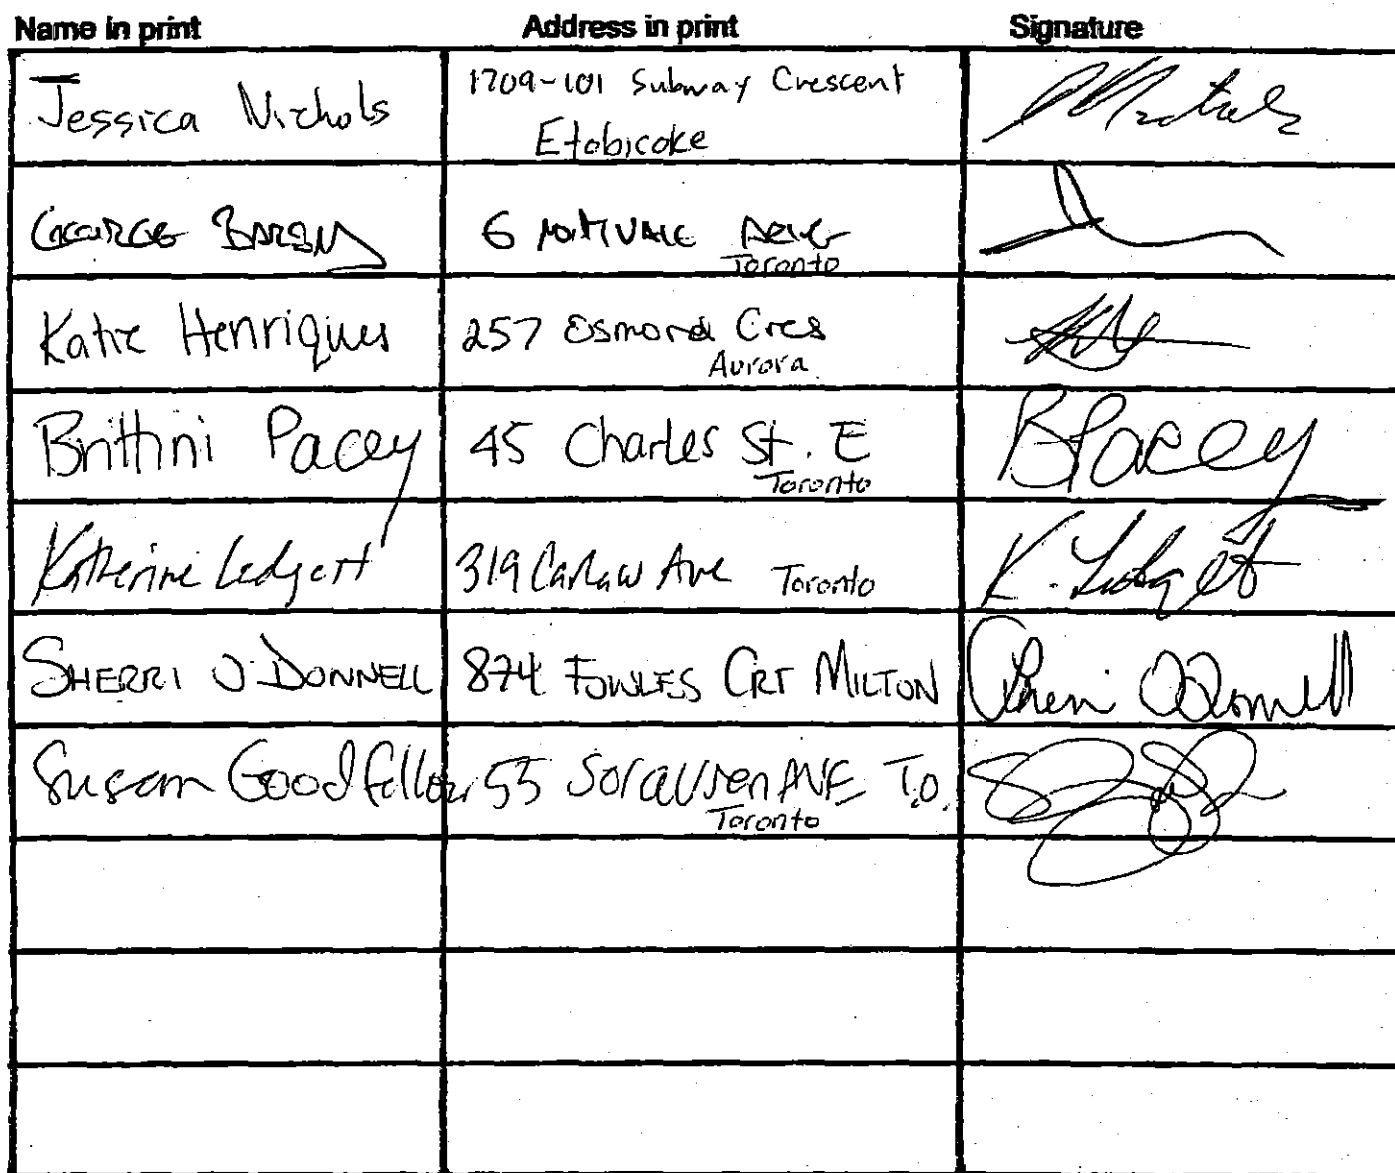 Name in print Address in print Signature
Jessica Nichols 1709-101 Subway Crescent
Etobicoke
GEORGE 6
Toronto
Katie Henriques 257 Osmond Cres
Aurora
Brittini Pacey 45 Charles St. E BPacey
Toronto
Katherine Ledgett 319 Carlaw Ave Toronto K. Ledgett
SHERRI O'DONNELL 874 FOWLES CRT MILTON Sherri O'Donnell
Susan Goodfellow 55 Sorauren AVE T.O.
Toronto